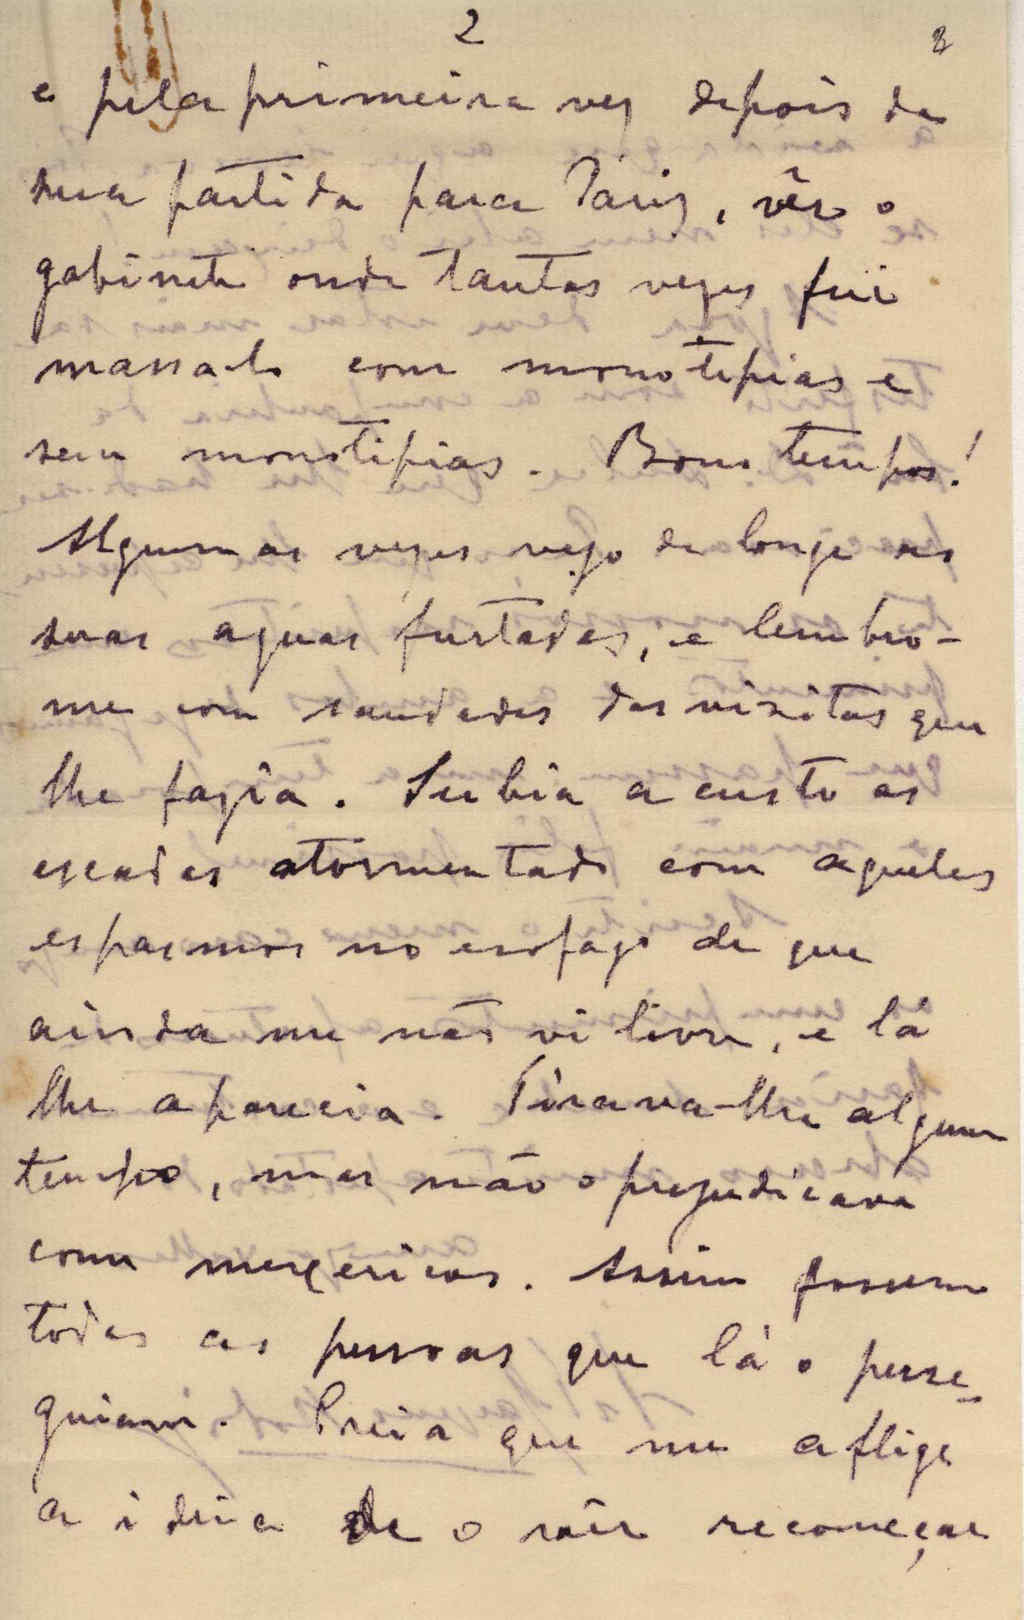 2
e pela primeira vez depois da
sua partida para Pariz, vêr o
gabinete onde tantas vezes fui
massal-o com monotipias e
sem monotipias. Bons tempos!
Algumas vezes vejo de longe as
suas aguas furtadas, e lembro-
me com saudades das visitas que
lhe fazia. Subia a custo as
escadas atormentado com aqueles
espasmos no esofago de que
ainda me não vi livre, e lá
lhe aparecia. Tirava-lhe algum
tempo, mas não o prejudicava
com mexericos. Assim fossem
todas as pessoas que lá o perse-
guiam. Creia que me aflige
a ideia de o vêr recomeçar